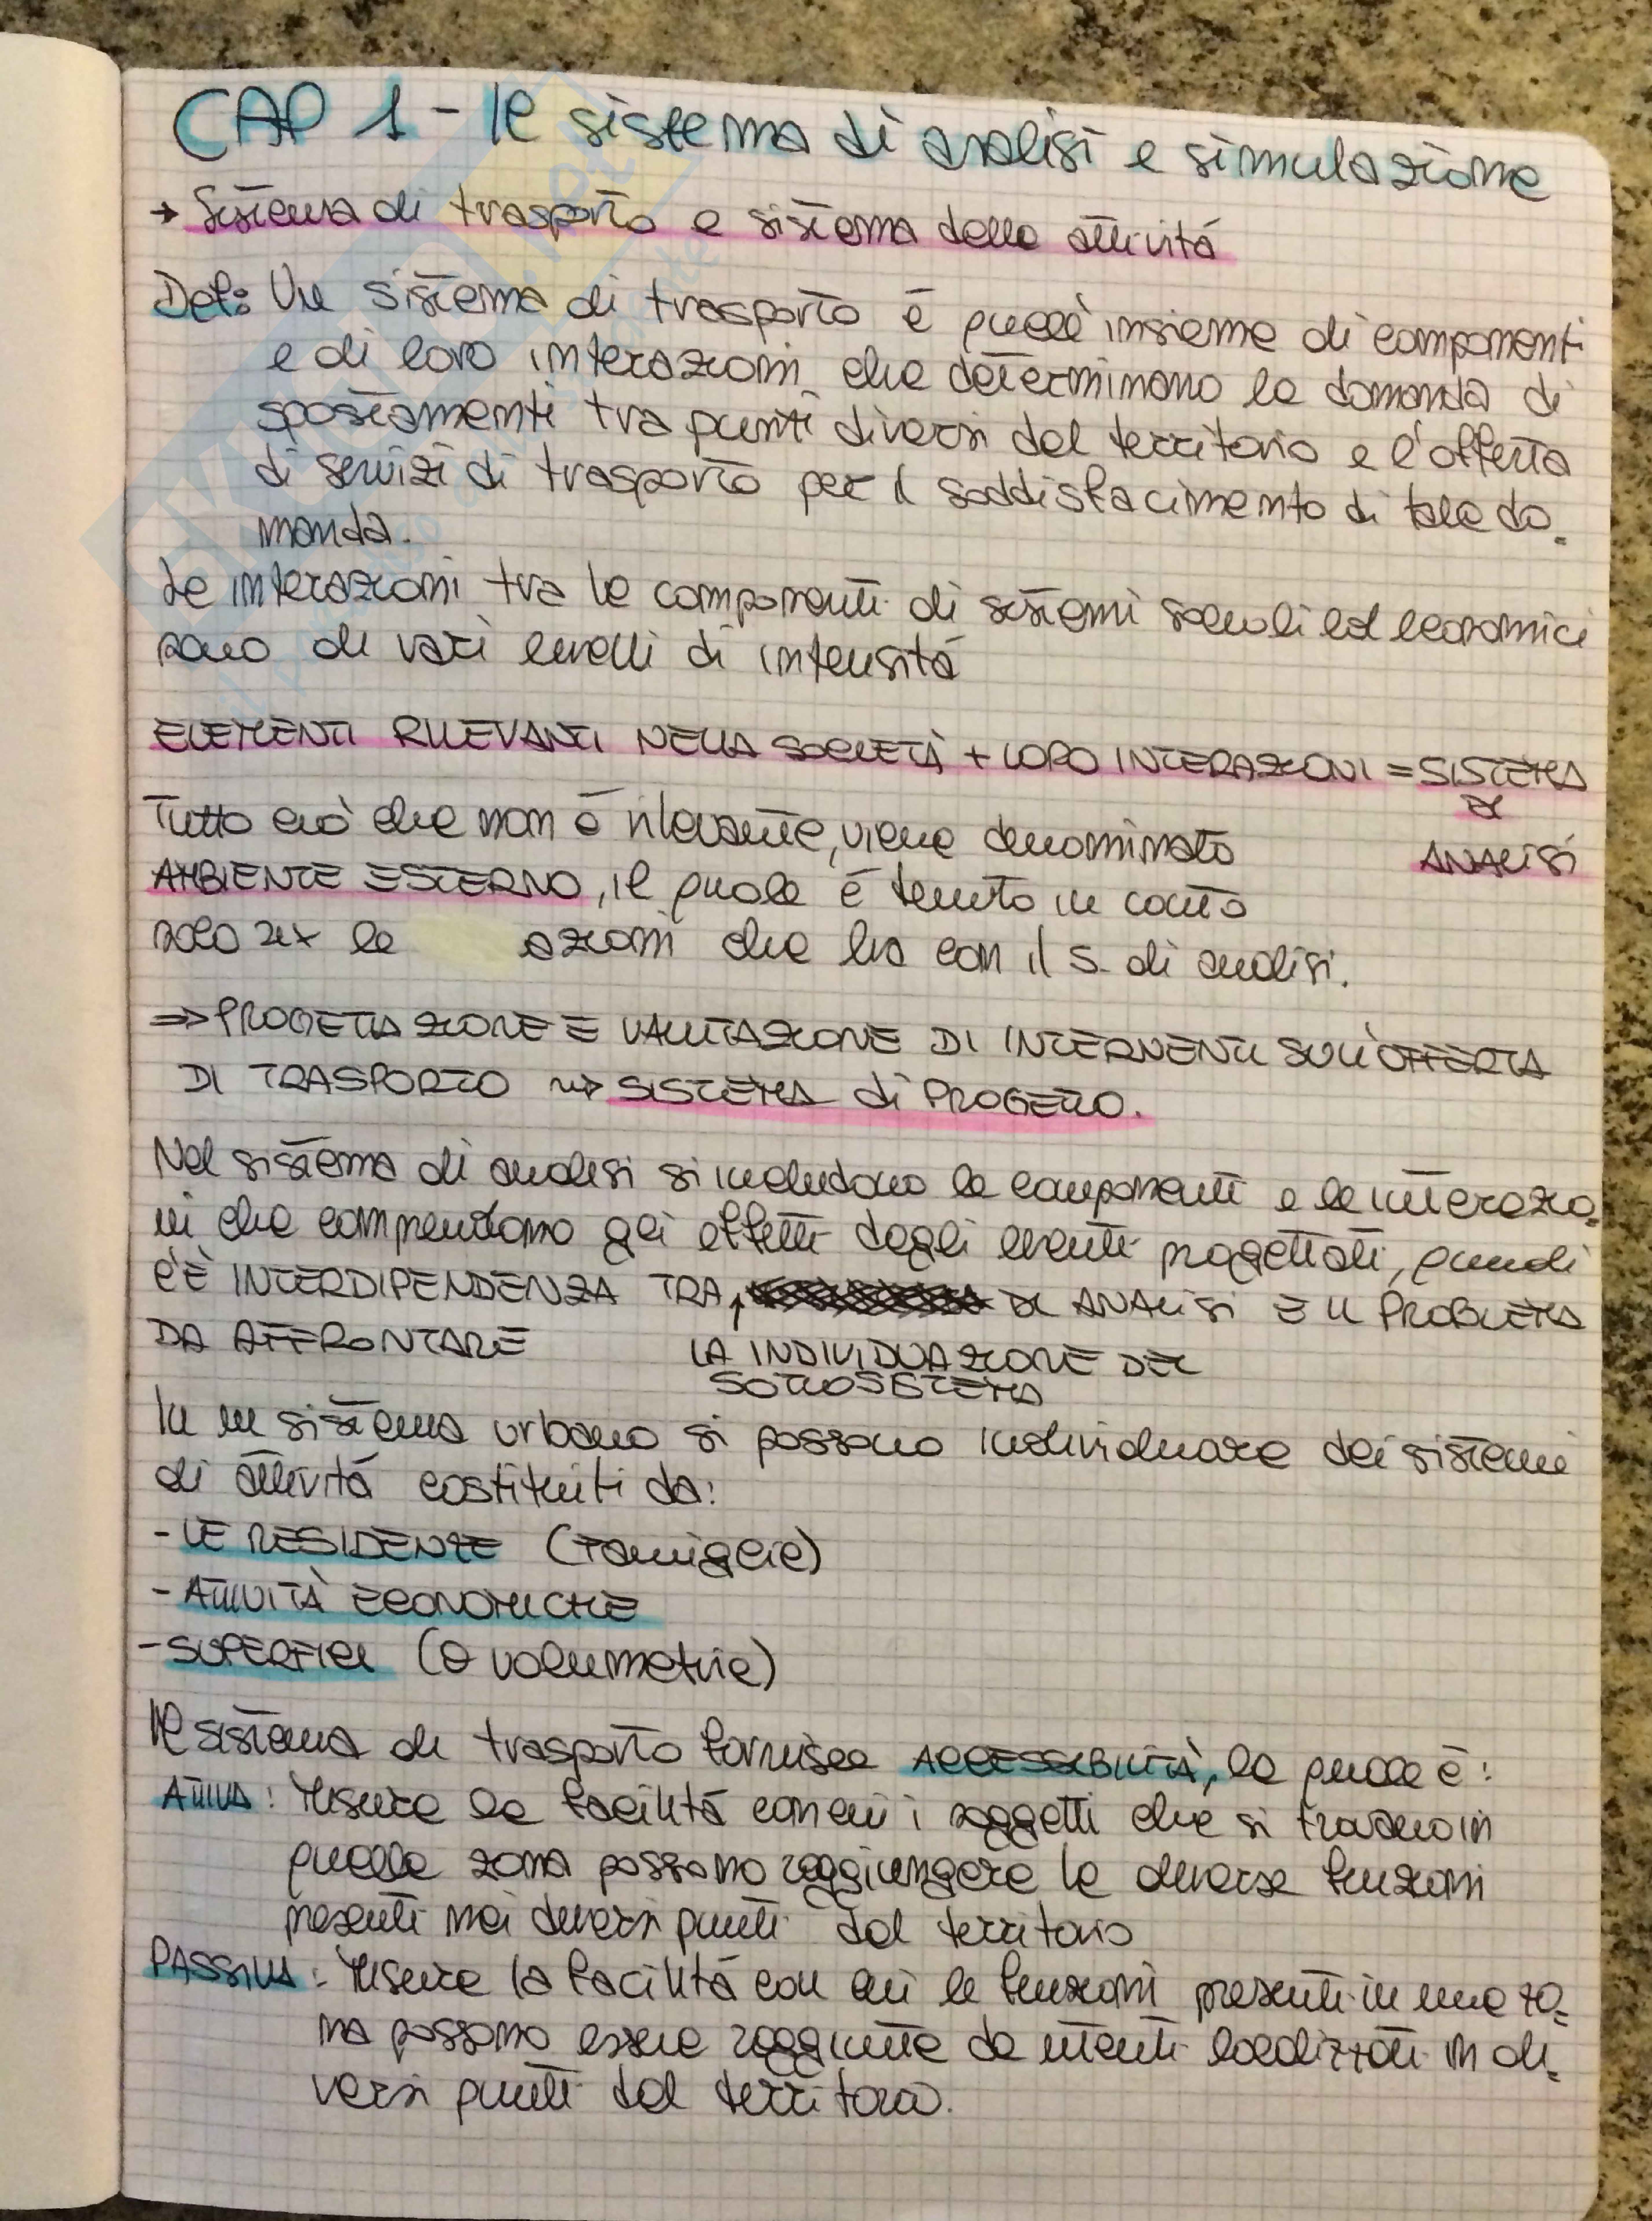 CAP 1 - Il sistema di analisi e simulazione
→ Sistema di trasporto e sistema delle attivitá
Def: Un sistema di trasporto è quell'insieme di componenti
e di loro interazioni che determinano la domanda di
spostamenti tra punti diversi del territorio e l'offerta
di servizi di trasporto per il soddisfacimento di tale do-
manda.
Le interazioni tra le componenti di sistemi sociali ed economici
sono di vari livelli di intensitá
ELEMENTI RILEVANTI NELLA SOCIETÀ + LORO INTERAZIONI = SISTEMA
DI
ANALISI
Tutto ció che non è rilevante, viene denominato
AMBIENTE ESTERNO, il quale é tenuto in conto
solo le azioni che ha con il S. di analisi.
⇒ PROGETTAZIONE E VALUTAZIONE DI INTERVENTI SULL'OFFERTA
DI TRASPORTO ⇝ SISTEMA di PROGETTO.
Nel sistema di analisi si includono le componenti e le interazio-
ni che comprendono gli effetti degli eventi progettati, quindi
c'È INTERDIPENDENZA TRA DI ANALISI E IL PROBLEMA
DA AFFRONTARE
LA INDIVIDUAZIONE DEL
SOTTOSISTEMA
In un sistema urbano si possono individuare dei sistemi
di attivitá costituiti da:
- LE RESIDENZE (famiglie)
- ATTIVITÀ ECONOMICHE
- SUPERFICI (o volumetrie)
Il sistema di trasporto fornisce ACCESSIBILITÀ, la quale è:
ATTIVA: Misura la facilitá con cui i soggetti che si trovano in
quella zona possono raggiungere le diverse funzioni
presenti nei diversi punti del territorio
PASSIVA: Misura la facilitá con cui le funzioni presenti in una zo-
na possono essere raggiunte da utenti localizzati in di-
versi punti del territorio.